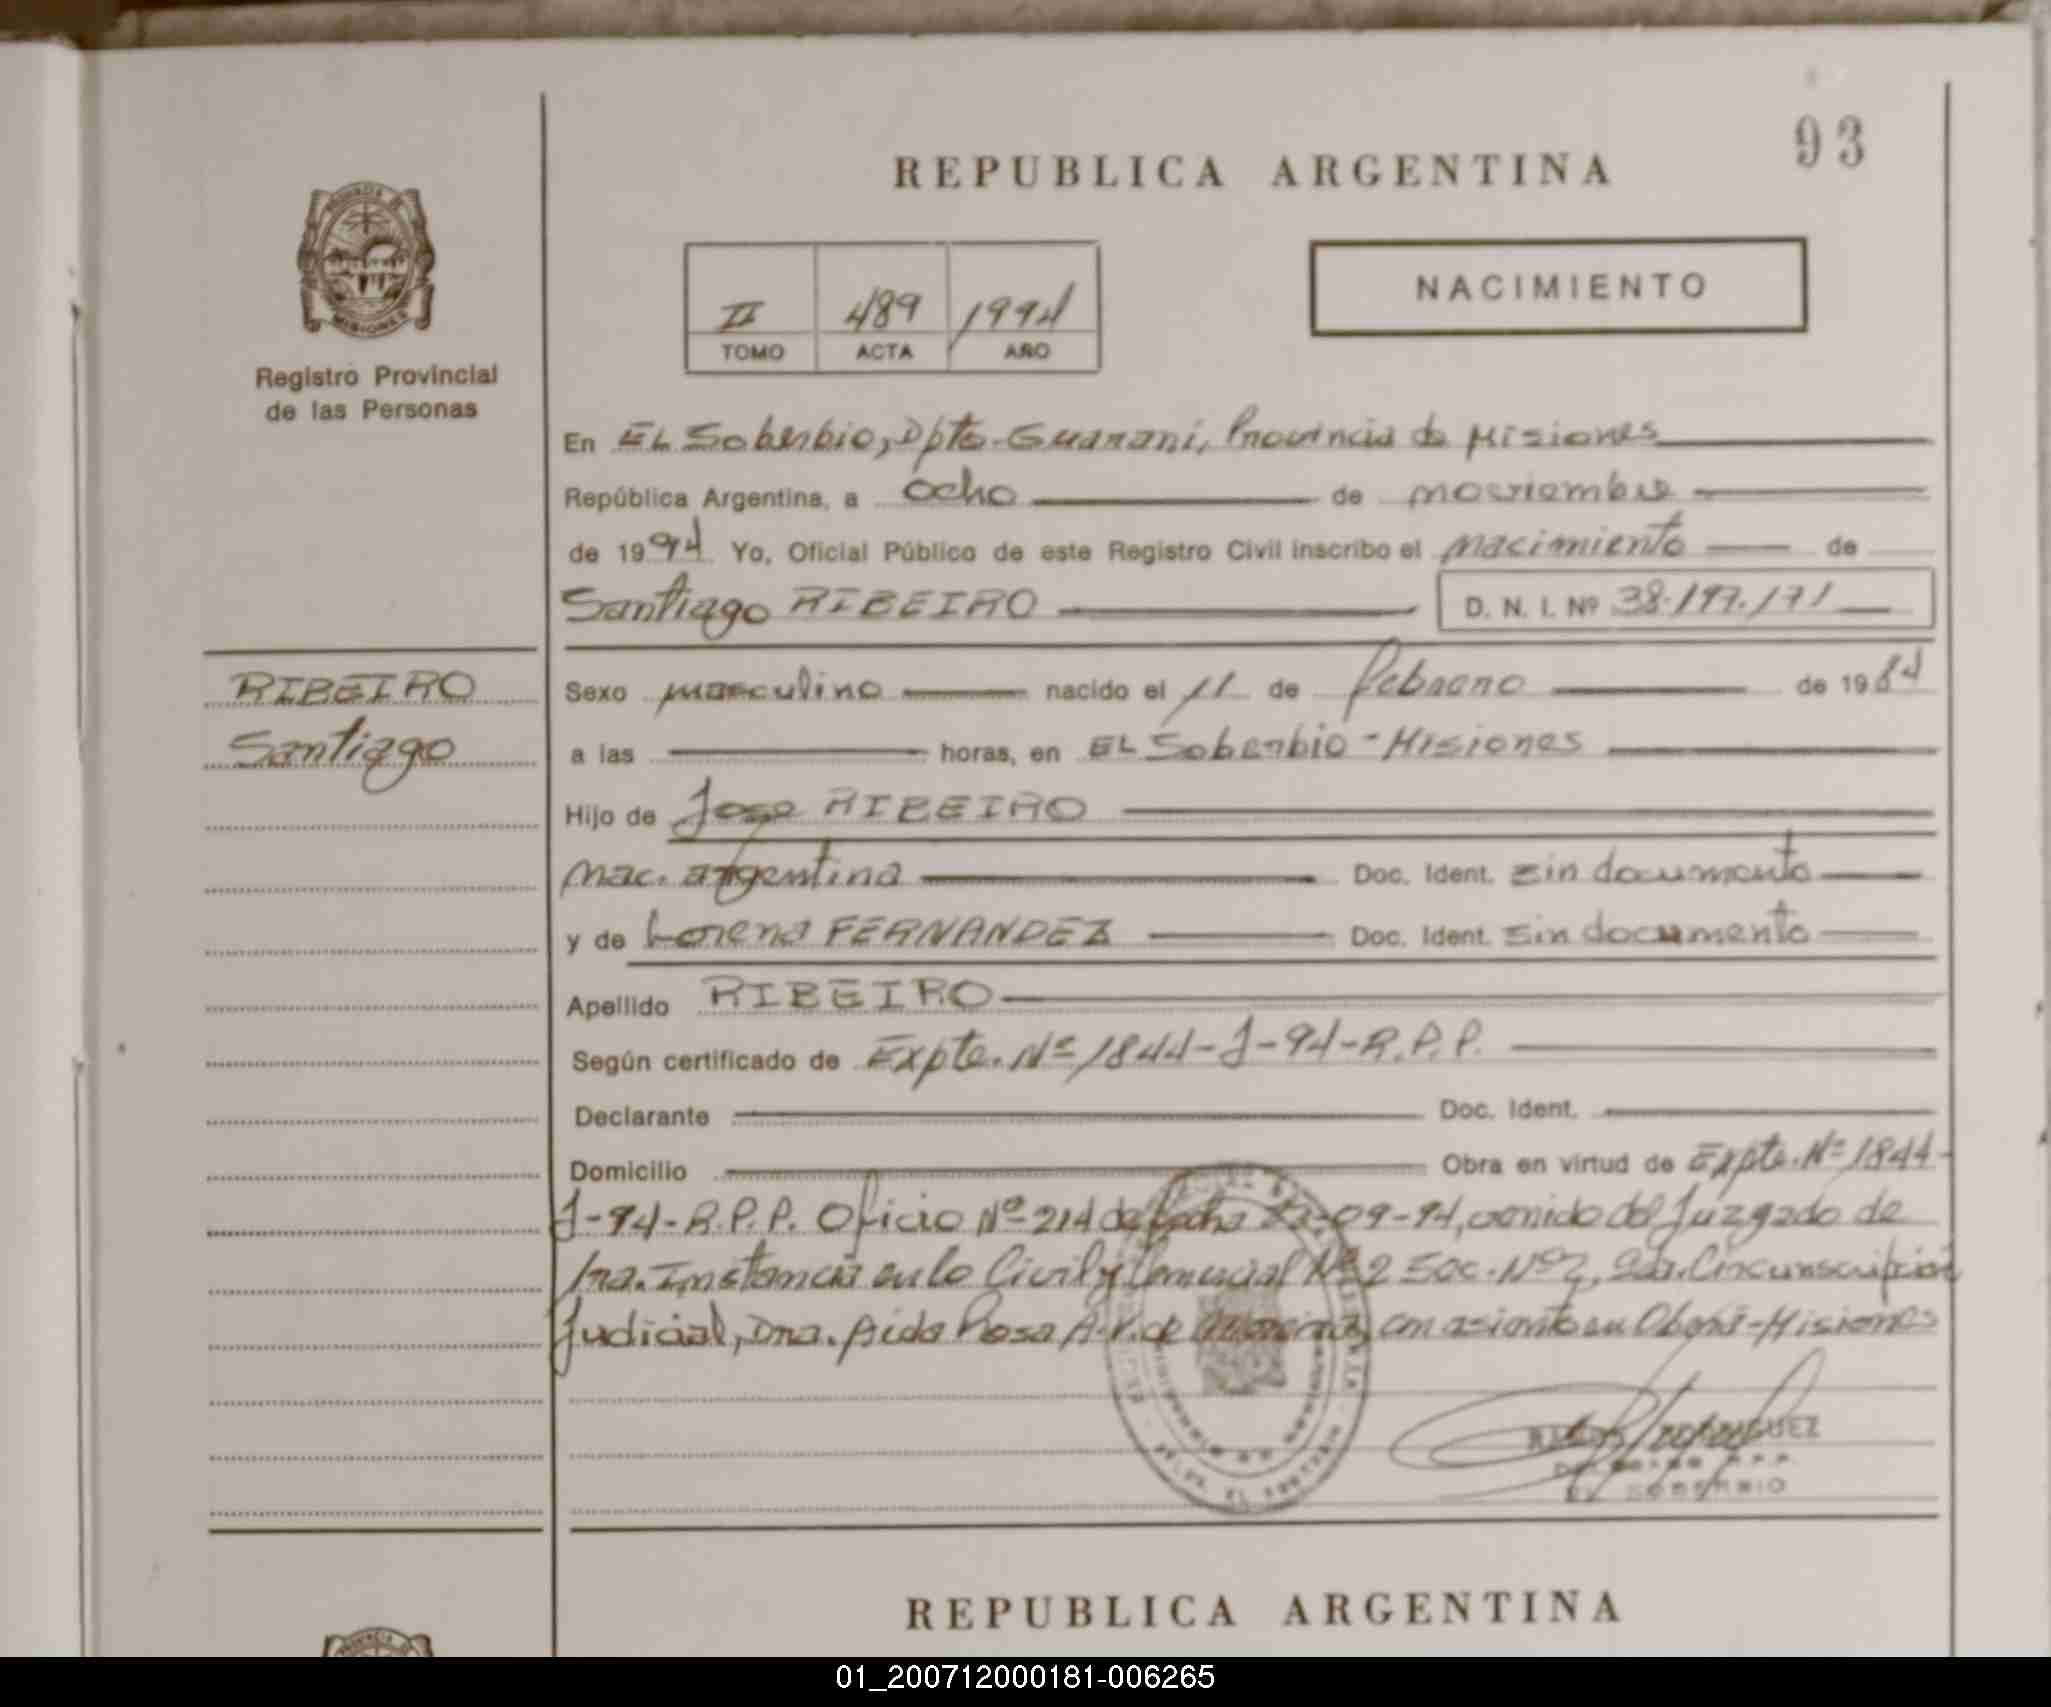 93
REPUBLICA ARGENTINA
NACIMIENTO
II 489 1994
TOMO ACTA AÑO
PROVINCIA DE MISIONES
Registro Provincial
de las Personas
En EL Soberbio, Dpto. Guaraní, Provincia de Misiones
República Argentina, a ocho de noviembre
de 1994 Yo, Oficial Público de este Registro Civil inscribo el nacimiento de
Santiago RIBEIRO D. N. I. Nº 38.197.171
RIBEIRO
Santiago
Sexo masculino nacido el 11 de febrero de 1984
a las horas, en EL Soberbio - Misiones
Hijo de Jose RIBEIRO
nac. argentina Doc. Ident. sin documento
y de Lorena FERNANDEZ Doc. Ident. sin documento
Apellido RIBEIRO
Según certificado de Expte. Nº 1844-J-94-R.P.P.
Declarante Doc. Ident.
Domicilio Obra en virtud de Expte. Nº 1844-
J-94-R.P.P. Oficio Nº 214 de fecha -09-94, venido del Juzgado de
1ra. Instancia en lo Civil y Comercial Nº 2 Sec. Nº 2, Circunscripción
Judicial, Dra. Aida Rosa A.V. de con asiento en Oberá-Misiones
RODRIGUEZ
EL SOBERBIO
REPUBLICA ARGENTINA
PROVINCIA DE
01_200712000181-006265